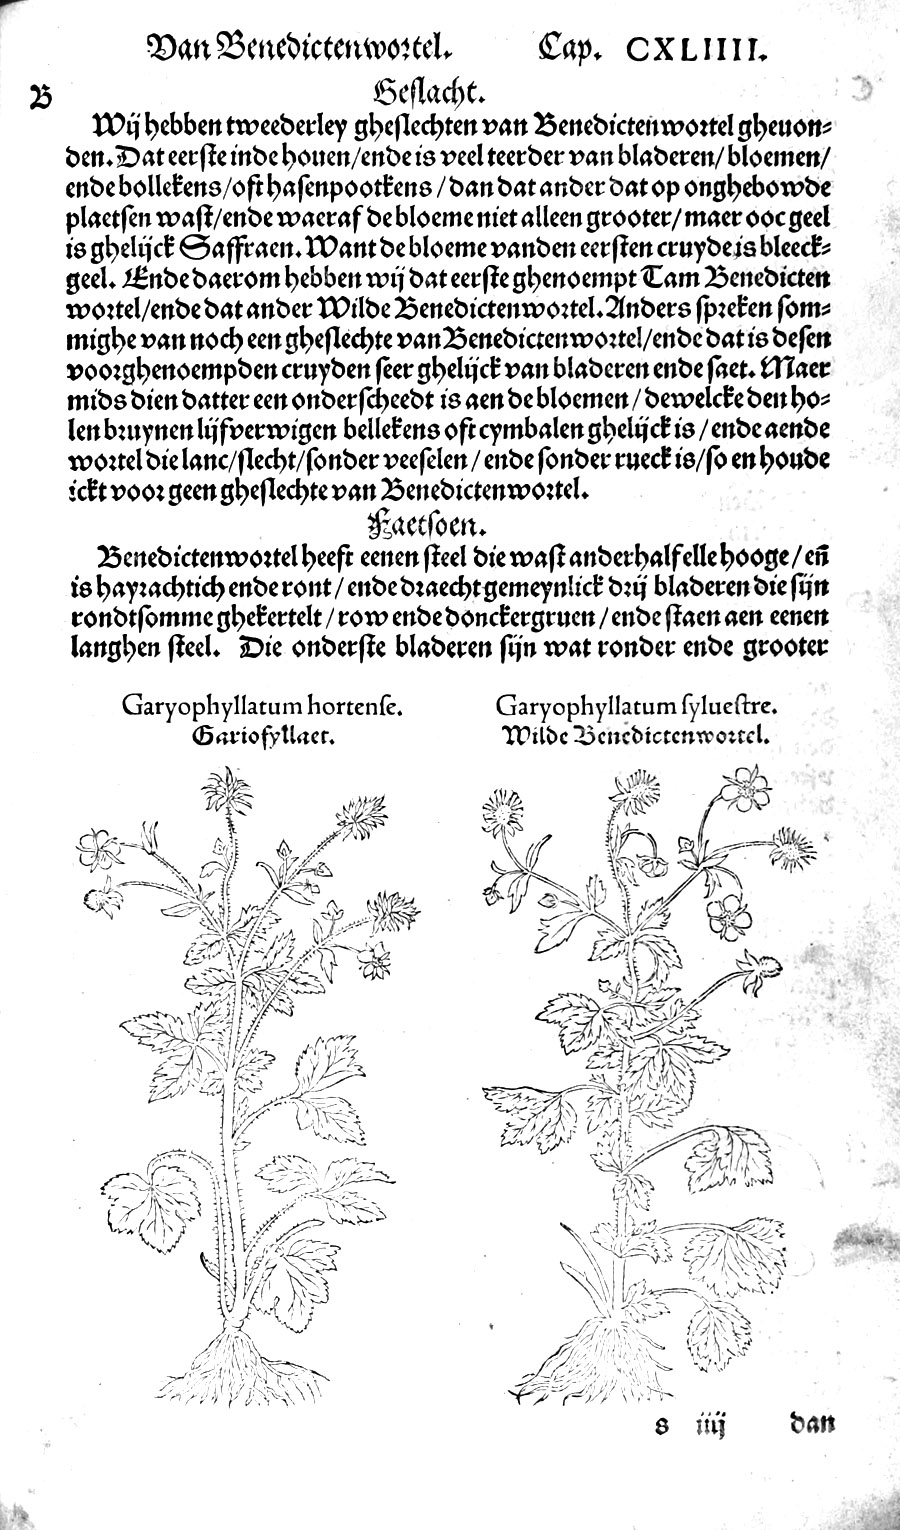 Van Benedictenwortel. Cap. CXLIIII.
B
Geslacht.
Wij hebben tweederley gheslechten van Benedictenwortel gheuon⸗
den. Dat eerste inde houen/ende is veel teerder van bladeren/ bloemen/
ende bollekens/oft hasenpootkens / dan dat ander dat op onghebowde
plaetsen wast/ende waeraf de bloeme niet alleen grooter/ maer ooc geel
is ghelijck Saffraen. Want de bloeme vanden eersten cruyde is bleeck⸗
geel. Ende daerom hebben wij dat eerste ghenoempt Tam Benedicten
wortel/ende dat ander Wilde Benedictenwortel. Anders spreken som⸗
mighe van noch een gheslechte van Benedictenwortel/ende dat is desen
voorghenoempden cruyden seer ghelijck van bladeren ende saet. Maer
mids dien datter een onderscheedt is aen de bloemen / dewelcke den ho⸗
len bruynen lijfverwigen bellekens oft cymbalen ghelijck is / ende aende
wortel die lanc/slecht/sonder veeselen / ende sonder rueck is/so en houde
ickt voor geen gheslechte van Benedictenwortel.
Faetsoen.
Benedictenwortel heeft eenen steel die wast anderhalf elle hooge / en̄
is hayrachtich ende ront / ende draecht gemeynlick drij bladeren die sijn
rondtsomme ghekertelt / row ende donckergruen / ende staen aen eenen
langhen steel. Die onderste bladeren sijn wat ronder ende grooter
Garyophyllatum hortense.
Gariofyllaet.
Garyophyllatum syluestre.
Wilde Benedictenwortel.
s iiij dan